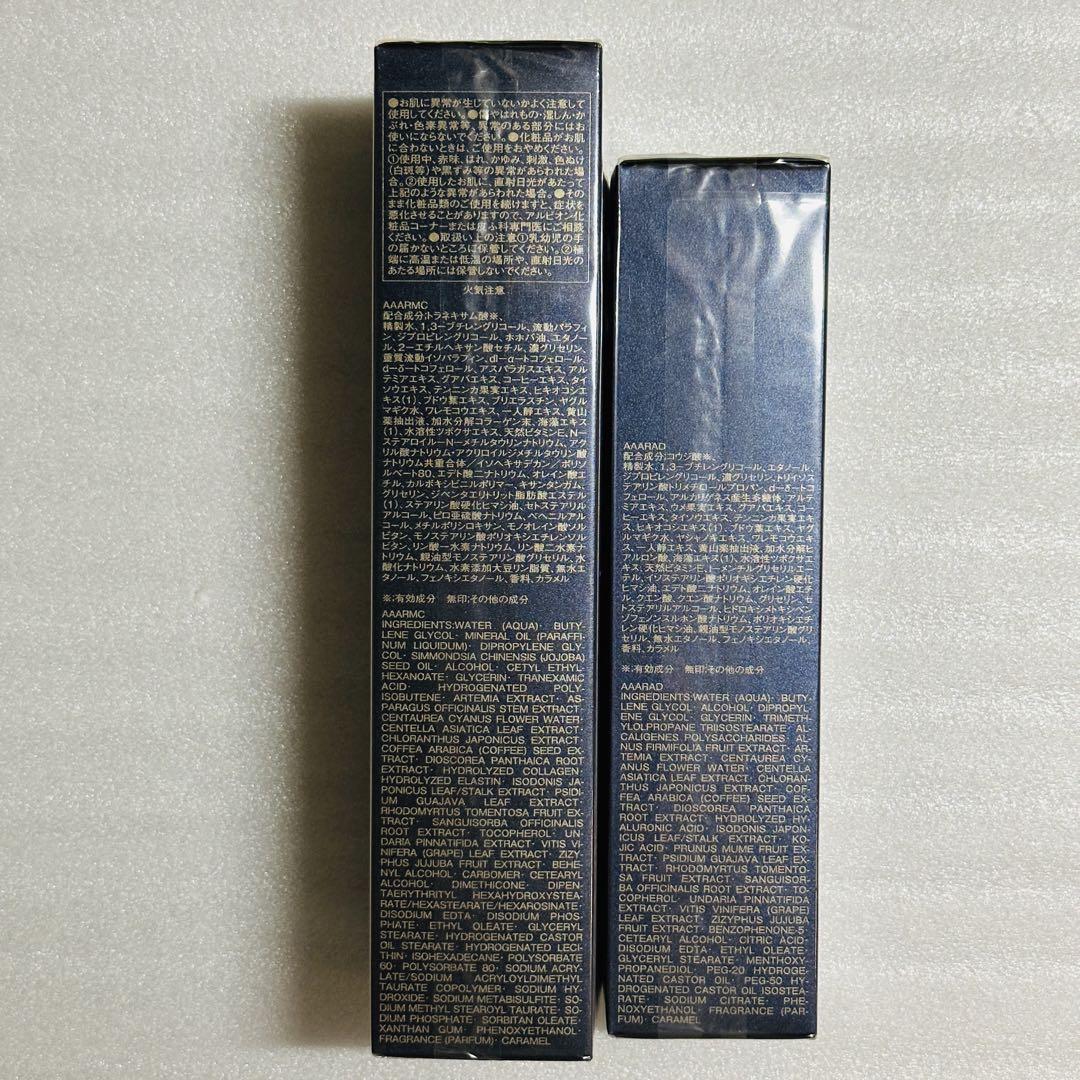 ●お肌に異常が生じていないかよく注意して
使用してください。●傷やはれもの・湿しん・か
ぶれ・色素異常等、異常のある部分にはお
使いにならないでください。●化粧品がお肌
に合わないときは、ご使用をおやめください。
①使用中、赤味、はれ、かゆみ、刺激、色ぬけ
(白斑等)や黒ずみ等の異常があらわれた場
合。②使用したお肌に、直射日光があたって
上記のような異常があらわれた場合。●その
まま化粧品類のご使用を続けますと、症状を
悪化させることがありますので、アルビオン化
粧品コーナーまたは皮ふ科専門医にご相談
ください。●取扱い上の注意①乳幼児の手
の届かないところに保管してください。②極
端に高温または低温の場所や、直射日光の
あたる場所には保管しないでください。
火気注意
AAARMC
配合成分:トラネキサム酸※、
精製水、1,3-ブチレングリコール、流動パラフィ
ン、ジプロピレングリコール、ホホバ油、エタノー
ル、2-エチルヘキサン酸セチル、濃グリセリン、
重質流動イソパラフィン、dl-α-トコフェロール、
d-δ-トコフェロール、アスパラガスエキス、アル
テミアエキス、グアバエキス、コーヒーエキス、タイ
ソウエキス、テンニンカ果実エキス、ヒキオコシエ
キス(1)、ブドウ葉エキス、プリエラスチン、ヤグル
マギク水、ワレモコウエキス、一人静エキス、黄山
薬抽出液、加水分解コラーゲン末、海藻エキス
(1)、水溶性ツボクサエキス、天然ビタミンE、N-
ステアロイル-N-メチルタウリンナトリウム、アク
リル酸ナトリウム・アクリロイルジメチルタウリン酸
ナトリウム共重合体/イソヘキサデカン/ポリソ
ルベート80、エデト酸二ナトリウム、オレイン酸エ
チル、カルボキシビニルポリマー、キサンタンガム、
グリセリン、ジペンタエリトリット脂肪酸エステル
(1)、ステアリン酸硬化ヒマシ油、セトステアリル
アルコール、ピロ亜硫酸ナトリウム、ベヘニルアル
コール、メチルポリシロキサン、モノオレイン酸ソル
ビタン、モノステアリン酸ポリオキシエチレンソル
ビタン、リン酸一水素ナトリウム、リン酸二水素ナ
トリウム、親油型モノステアリン酸グリセリル、水
酸化ナトリウム、水素添加大豆リン脂質、無水エ
タノール、フェノキシエタノール、香料、カラメル
※:有効成分 無印:その他の成分
AAARMC
INGREDIENTS:WATER (AQUA)· BUTY-
LENE GLYCOL· MINERAL OIL (PARAFFI-
NUM LIQUIDUM)· DIPROPYLENE GLY-
COL· SIMMONDSIA CHINENSIS (JOJOBA)
SEED OIL· ALCOHOL· CETYL ETHYL-
HEXANOATE· GLYCERIN· TRANEXAMIC
ACID· HYDROGENATED POLY-
ISOBUTENE· ARTEMIA EXTRACT· AS-
PARAGUS OFFICINALIS STEM EXTRACT·
CENTAUREA CYANUS FLOWER WATER·
CENTELLA ASIATICA LEAF EXTRACT·
CHLORANTHUS JAPONICUS EXTRACT·
COFFEA ARABICA (COFFEE) SEED EX-
TRACT· DIOSCOREA PANTHAICA ROOT
EXTRACT· HYDROLYZED COLLAGEN·
HYDROLYZED ELASTIN· ISODONIS JA-
PONICUS LEAF/STALK EXTRACT· PSIDI-
UM GUAJAVA LEAF EXTRACT·
RHODOMYRTUS TOMENTOSA FRUIT EX-
TRACT· SANGUISORBA OFFICINALIS
ROOT EXTRACT· TOCOPHEROL· UN-
DARIA PINNATIFIDA EXTRACT· VITIS VI-
NIFERA (GRAPE) LEAF EXTRACT· ZIZY-
PHUS JUJUBA FRUIT EXTRACT· BEHE-
NYL ALCOHOL· CARBOMER· CETEARYL
ALCOHOL· DIMETHICONE· DIPEN-
TAERYTHRITYL HEXAHYDROXYSTEA-
RATE/HEXASTEARATE/HEXAROSINATE·
DISODIUM EDTA· DISODIUM PHOS-
PHATE· ETHYL OLEATE· GLYCERYL
STEARATE· HYDROGENATED CASTOR
OIL STEARATE· HYDROGENATED LECI-
THIN· ISOHEXADECANE· POLYSORBATE
60· POLYSORBATE 80· SODIUM ACRY-
LATE/SODIUM ACRYLOYLDIMETHYL
TAURATE COPOLYMER· SODIUM HY-
DROXIDE· SODIUM METABISULFITE· SO-
DIUM METHYL STEAROYL TAURATE· SO-
DIUM PHOSPHATE· SORBITAN OLEATE·
XANTHAN GUM· PHENOXYETHANOL·
FRAGRANCE (PARFUM)· CARAMEL
AAARAD
配合成分:コウジ酸※、
精製水、1,3-ブチレングリコール、エタノール、
ジプロピレングリコール、濃グリセリン、トリイソス
テアリン酸トリメチロールプロパン、d-δ-トコ
フェロール、アルカリゲネス産生多糖体、アルテ
ミアエキス、ウメ果実エキス、グアバエキス、コー
ヒーエキス、タイソウエキス、テンニンカ果実エキ
ス、ヒキオコシエキス(1)、ブドウ葉エキス、ヤグ
ルマギク水、ヤシャノキエキス、ワレモコウエキ
ス、一人静エキス、黄山薬抽出液、加水分解ヒ
アルロン酸、海藻エキス(1)、水溶性ツボクサエ
キス、天然ビタミンE、l-メンチルグリセリルエー
テル、イソステアリン酸ポリオキシエチレン硬化
ヒマシ油、エデト酸二ナトリウム、オレイン酸エチ
ル、クエン酸、クエン酸ナトリウム、グリセリン、セ
トステアリルアルコール、ヒドロキシメトキシベン
ゾフェノンスルホン酸ナトリウム、ポリオキシエチ
レン硬化ヒマシ油、親油型モノステアリン酸グリ
セリル、無水エタノール、フェノキシエタノール、
香料、カラメル
※:有効成分 無印:その他の成分
AAARAD
INGREDIENTS:WATER (AQUA)· BUTY-
LENE GLYCOL· ALCOHOL· DIPROPYL-
ENE GLYCOL· GLYCERIN· TRIMETH-
YLOLPROPANE TRIISOSTEARATE· AL-
CALIGENES POLYSACCHARIDES· AL-
NUS FIRMIFOLIA FRUIT EXTRACT· AR-
TEMIA EXTRACT· CENTAUREA CY-
ANUS FLOWER WATER· CENTELLA
ASIATICA LEAF EXTRACT· CHLORAN-
THUS JAPONICUS EXTRACT· COF-
FEA ARABICA (COFFEE) SEED EX-
TRACT· DIOSCOREA PANTHAICA
ROOT EXTRACT· HYDROLYZED HY-
ALURONIC ACID· ISODONIS JAPON-
ICUS LEAF/STALK EXTRACT· KO-
JIC ACID· PRUNUS MUME FRUIT EX-
TRACT· PSIDIUM GUAJAVA LEAF EX-
TRACT· RHODOMYRTUS TOMENTO-
SA FRUIT EXTRACT· SANGUISOR-
BA OFFICINALIS ROOT EXTRACT· TO-
COPHEROL· UNDARIA PINNATIFIDA
EXTRACT· VITIS VINIFERA (GRAPE)
LEAF EXTRACT· ZIZYPHUS JUJUBA
FRUIT EXTRACT· BENZOPHENONE-5·
CETEARYL ALCOHOL· CITRIC ACID·
DISODIUM EDTA· ETHYL OLEATE·
GLYCERYL STEARATE· MENTHOXY-
PROPANEDIOL· PEG-20 HYDROGE-
NATED CASTOR OIL· PEG-50 HY-
DROGENATED CASTOR OIL ISOSTEA-
RATE· SODIUM CITRATE· PHE-
NOXYETHANOL· FRAGRANCE (PAR-
FUM)· CARAMEL